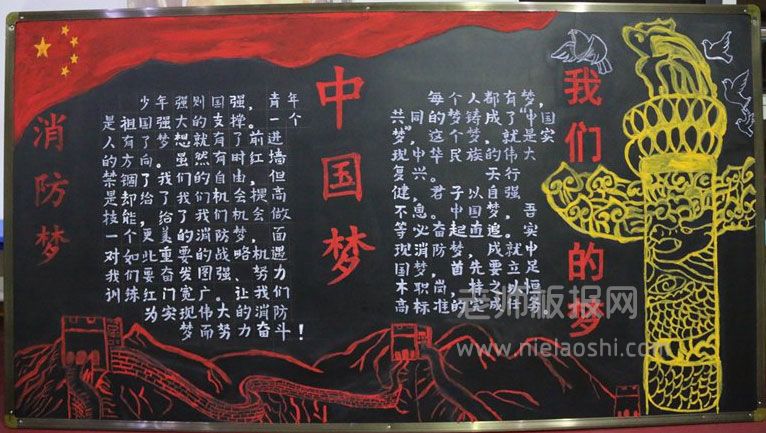 消防梦
少年强则国强，青年
是祖国强大的支撑。一个
人有了梦想就有了前进
的方向。虽然有时红墙
禁锢了我们的自由，但
是却给了我们机会提高
技能，给了我们机会做
一个更美的消防梦，面
对如此重要的战略机遇
我们要奋发图强、努力
训练红门宽广。让我们
为实现伟大的消防
梦而努力奋斗！
中国梦
每个人都有梦，
共同的梦铸成了“中国
梦”，这个梦，就是实
现中华民族的伟大
复兴。天行
健，君子以自强
不息。中国梦，吾
等必奋起直追。实
现消防梦，成就中
国梦，首先要立足
本职岗，持之以恒
高标准的完成任务。
我们的梦
老师板报网
www.nielaoshi.com